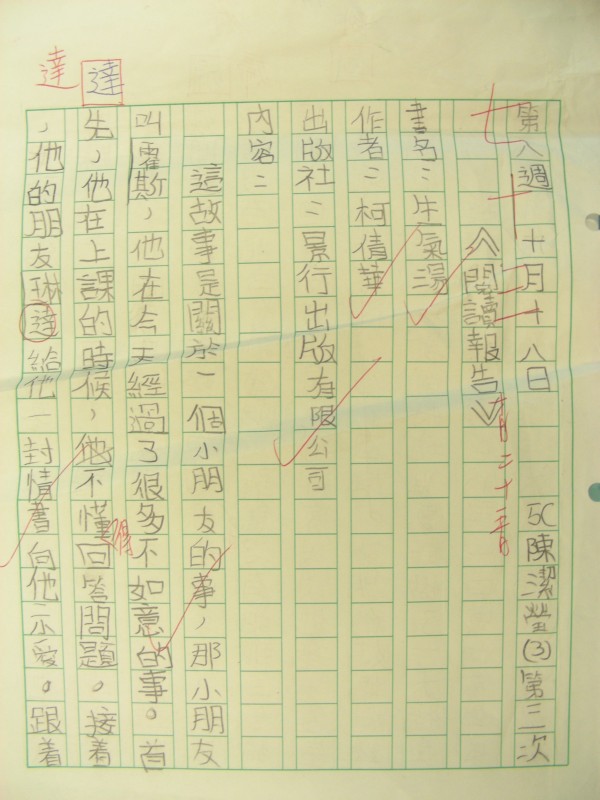 第八週 十月十八日 5C陳潔瑩(3) 第三次
七 十
《閱讀報告》
十月二十二日
書名：生氣湯
作者：柯倩華
出版社：景行出版有限公司
內容：
這故事是關於一個小朋友的事，那小朋友
叫霍斯，他在今天經過了很多不如意的事。首
先，他在上課的時候，他不懂回答問題。接着
得
，他的朋友琳達給他一封情書向他示愛。跟着
達
達